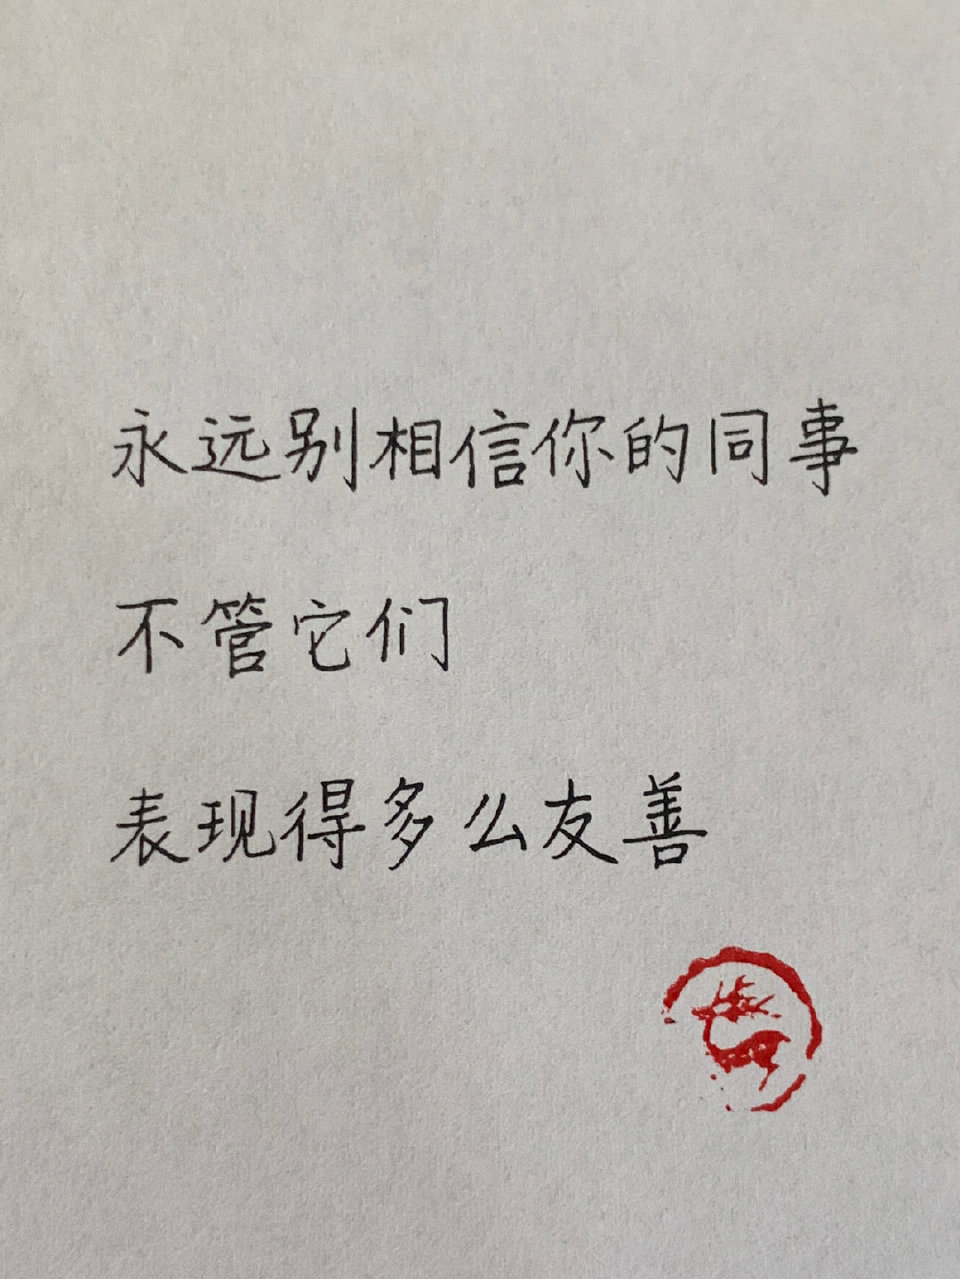 永远别相信你的同事
不管它们
表现得多么友善